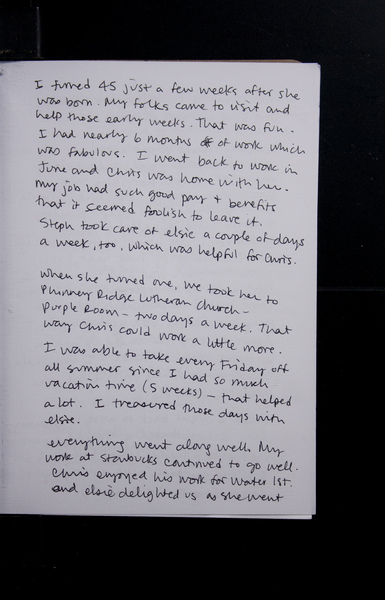 I turned 45 just a few weeks after she
was born. My folks came to visit and
help those early weeks. That was fun.
I had nearly 6 months of work which
was fabulous. I went back to work in
June and Chris was home with her.
My job had such good pay & benefits
that it seemed foolish to leave it.
Steph took care of elsie a couple of days
a week, too, which was helpful for Chris.
When she turned one, we took her to
Phinney Ridge Lutheran Church -
Purple Room - two days a week. That
way Chris could work a little more.
I was able to take every Friday off
all summer since I had so much
vacation time (5 weeks) - that helped
a lot. I treasured those days with
elsie.
everything went along well. My
work at Starbucks continued to go well.
Chris enjoyed his work for Water 1st.
and elsie delighted us as she went